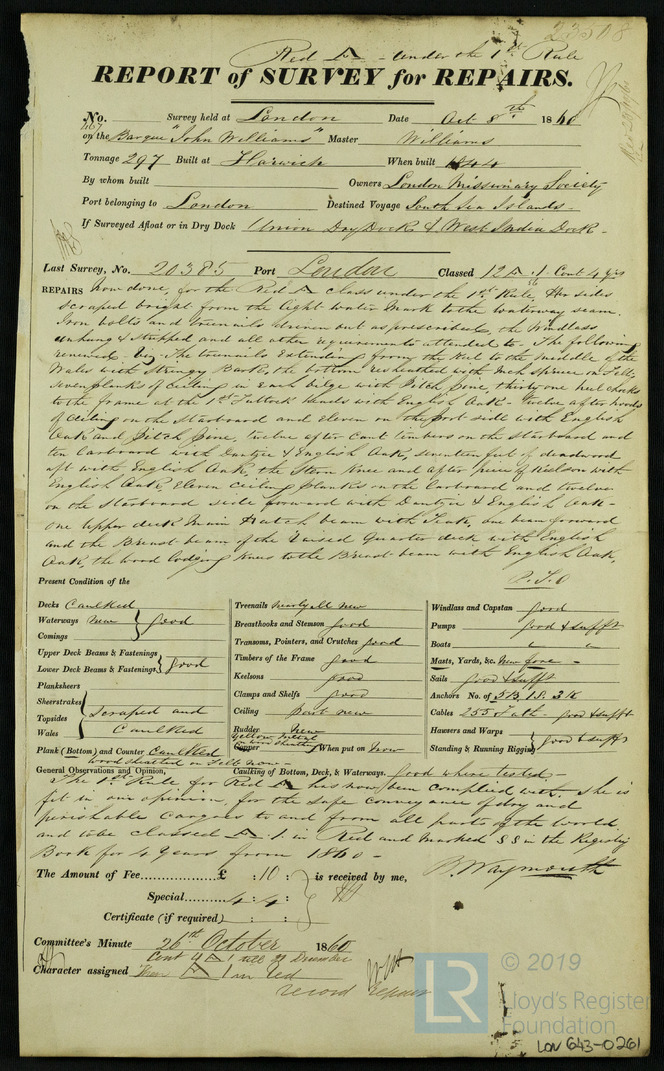 23508
Red A - under the 1st Rule
REPORT of SURVEY for REPAIRS.
No. Survey held at London Date Oct 8th 1860
on the Barque "John Williams" Master Williams
Tonnage 297 Built at Harwich When built 1844
By whom built Owners London Missionary Society
Port belonging to London Destined Voyage South Sea Islands -
If Surveyed Afloat or in Dry Dock Union Dry Dock & West India Dock -
Last Survey, No. 20385 Port London Classed 12 A .1. Cont 4 yrs
REPAIRS now done, for the Red A class under the 1st Rule, Her sides
scraped bright from the light water mark to the waterway seam.
Iron bolts and treenails driven out as prescribed, the Windlass
unhung & stripped and all other requirements attended to - The following
renewed Viz - The treenails Extending from the keel to the middle of the
Wales with Stringy Bark, the bottom resheathed with Inch Spruce on Felt,
seven planks of Ceiling in each bilge with Pitch pine, thirty one heel chocks
to the frame at the 1st Futtock heads with English Oak - twelve after hoods
of Ceiling on the Starboard and eleven on the port side with English
Oak and Pitch Pine, twelve after Cant timbers on the Starboard and
ten Larboard with Dantzic & English Oak, seventeen feet of deadwood
aft with English Oak, the Stern Knee and after piece of Keelson with
English Oak, Eleven Ceiling planks on the Larboard and twelve
on the Starboard side forward with Dantzic & English Oak -
One upper deck Main Hatch beam with Teak, one beam forward
and the Breast beam of the Raised Quarter deck with English
Oak, the wood lodging knees to the Breast beam with English Oak,
P.T.O
Present Condition of the
Decks Caulked
Waterways New good
Comings
Upper Deck Beams & Fastenings
Lower Deck Beams & Fastenings good
Planksheers
Sheerstrakes
Topsides Scraped and
Wales Caulked
Plank (Bottom) and Counter Caulked
wood sheathed on Felt now -
Treenails nearly all new
Breasthooks and Stemson good
Transoms, Pointers, and Crutches good
Timbers of the Frame good
Keelsons good
Clamps and Shelfs good
Ceiling part new
Rudder new
Yellow metal
Copper When put on Now
Windlass and Capstan good
Pumps good & sufft
Boats " "
Masts, Yards, &c. New fore -
Sails good & sufft
Anchors No. of 5B. 1S. 3K
Cables 255 Fath - good & sufft
Hawsers and Warps
Standing & Running Rigging good & sufft
General Observations and Opinion, Caulking of Bottom, Deck, & Waterways. Good where tested -
The 1st Rule for Red A has now been complied with. She is
fit in our opinion, for the safe conveyance of dry and
perishable cargoes to and from all parts of the world,
and to be classed A .1. in Red and marked SS in the Registry
Book for 4 Years from 1860 -
The Amount of Fee £ :10: is received by me, B. Waymouth
Special 4 : 4 :
Certificate (if required) : :
Committee's Minute 26th October 1860
Cont 4 A 1 till 31 December
Character assigned Then A 1 in red
record repairs
LR © 2019
Lloyd's Register
Foundation
LON 643-0261